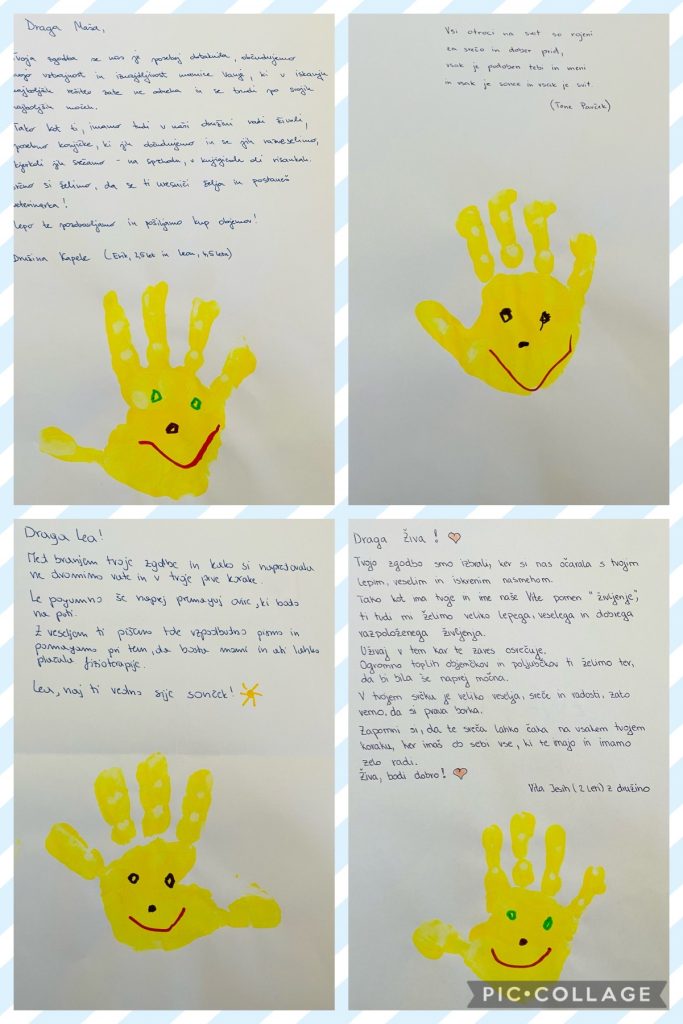 Draga Maša,
Tvoja zgodba se nas je posebej dotaknila, občudujemo
tvojo vztrajnost in iznajdljivost mamice Vanje, ki v iskanju
najboljših rešitev zate ne odneha in se trudi po svojih
najboljših močeh.
Tako kot ti, imamo tudi v naši družini radi živali,
posebno konjičke, ki jih občudujemo in se jih razveselimo,
kjerkoli jih srečamo - na sprehodu, v knjigicah ali risankah.
si želimo, da se ti uresniči želja in postaneš
veterinarka!
Lepo te pozdravljamo in pošiljamo kup objemov!
Družina Kapele (Erik, 2,5 let in Leon, 4,5 leta)
Vsi otroci na svet so rojeni
za srečo in dober prid,
vsak je podoben tebi in meni
in vsak je sonce in vsak je svit.
(Tone Pavček)
Draga Lea!
Med branjem tvoje zgodbe in kako si napredovala
ne dvomimo vate in v tvoje prve korake.
Le pogumno še naprej premaguj ovire, ki bodo
na poti.
Z veseljem ti pišemo tole vzpodbudno pismo in
pomagamo pri tem, da bosta mami in ati lahko
plačala fizioterapije.
Lea, naj ti vedno sije sonček!
Draga Živa!
Tvojo zgodbo smo izbrali, ker si nas očarala s tvojim
lepim, veselim in iskrenim nasmehom.
Tako kot ima tvoje in ime naše Vite pomen "življenje",
ti tudi mi želimo veliko lepega, veselega in dobrega
razpoloženega življenja.
Uživaj v tem kar te zares osrečuje.
Ogromno toplih objemčkov in poljubčkov ti želimo ter,
da bi bila še naprej močna.
V tvojem srčku je veliko veselja, sreče in radosti, zato
vemo, da si prava borka.
Zapomni si, da te sreča lahko čaka na vsakem tvojem
koraku, ker imaš ob sebi vse, ki te imajo in imamo
zelo radi.
Živa, bodi dobro!
Vita Jesih (2 leti) z družino
PIC•COLLAGE